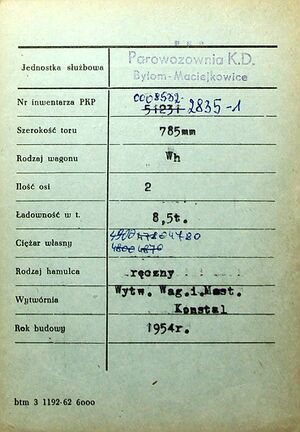 P K P
Jednostka służbowa Parowozownia K.D.
Bytom-Maciejkowice
0008532
Nr inwentarza PKP 51231 2835-1
Szerokość toru 785mm
Rodzaj wagonu Wh
Ilość osi 2
Ładowność w t. 8,5t.
4900 4780
Ciężar własny 4800 4870
Rodzaj hamulca ręczny
Wytw. Wag.i.Mast.
Wytwórnia Konstal
Rok budowy 1954r.
btm 3 1192-62 6000